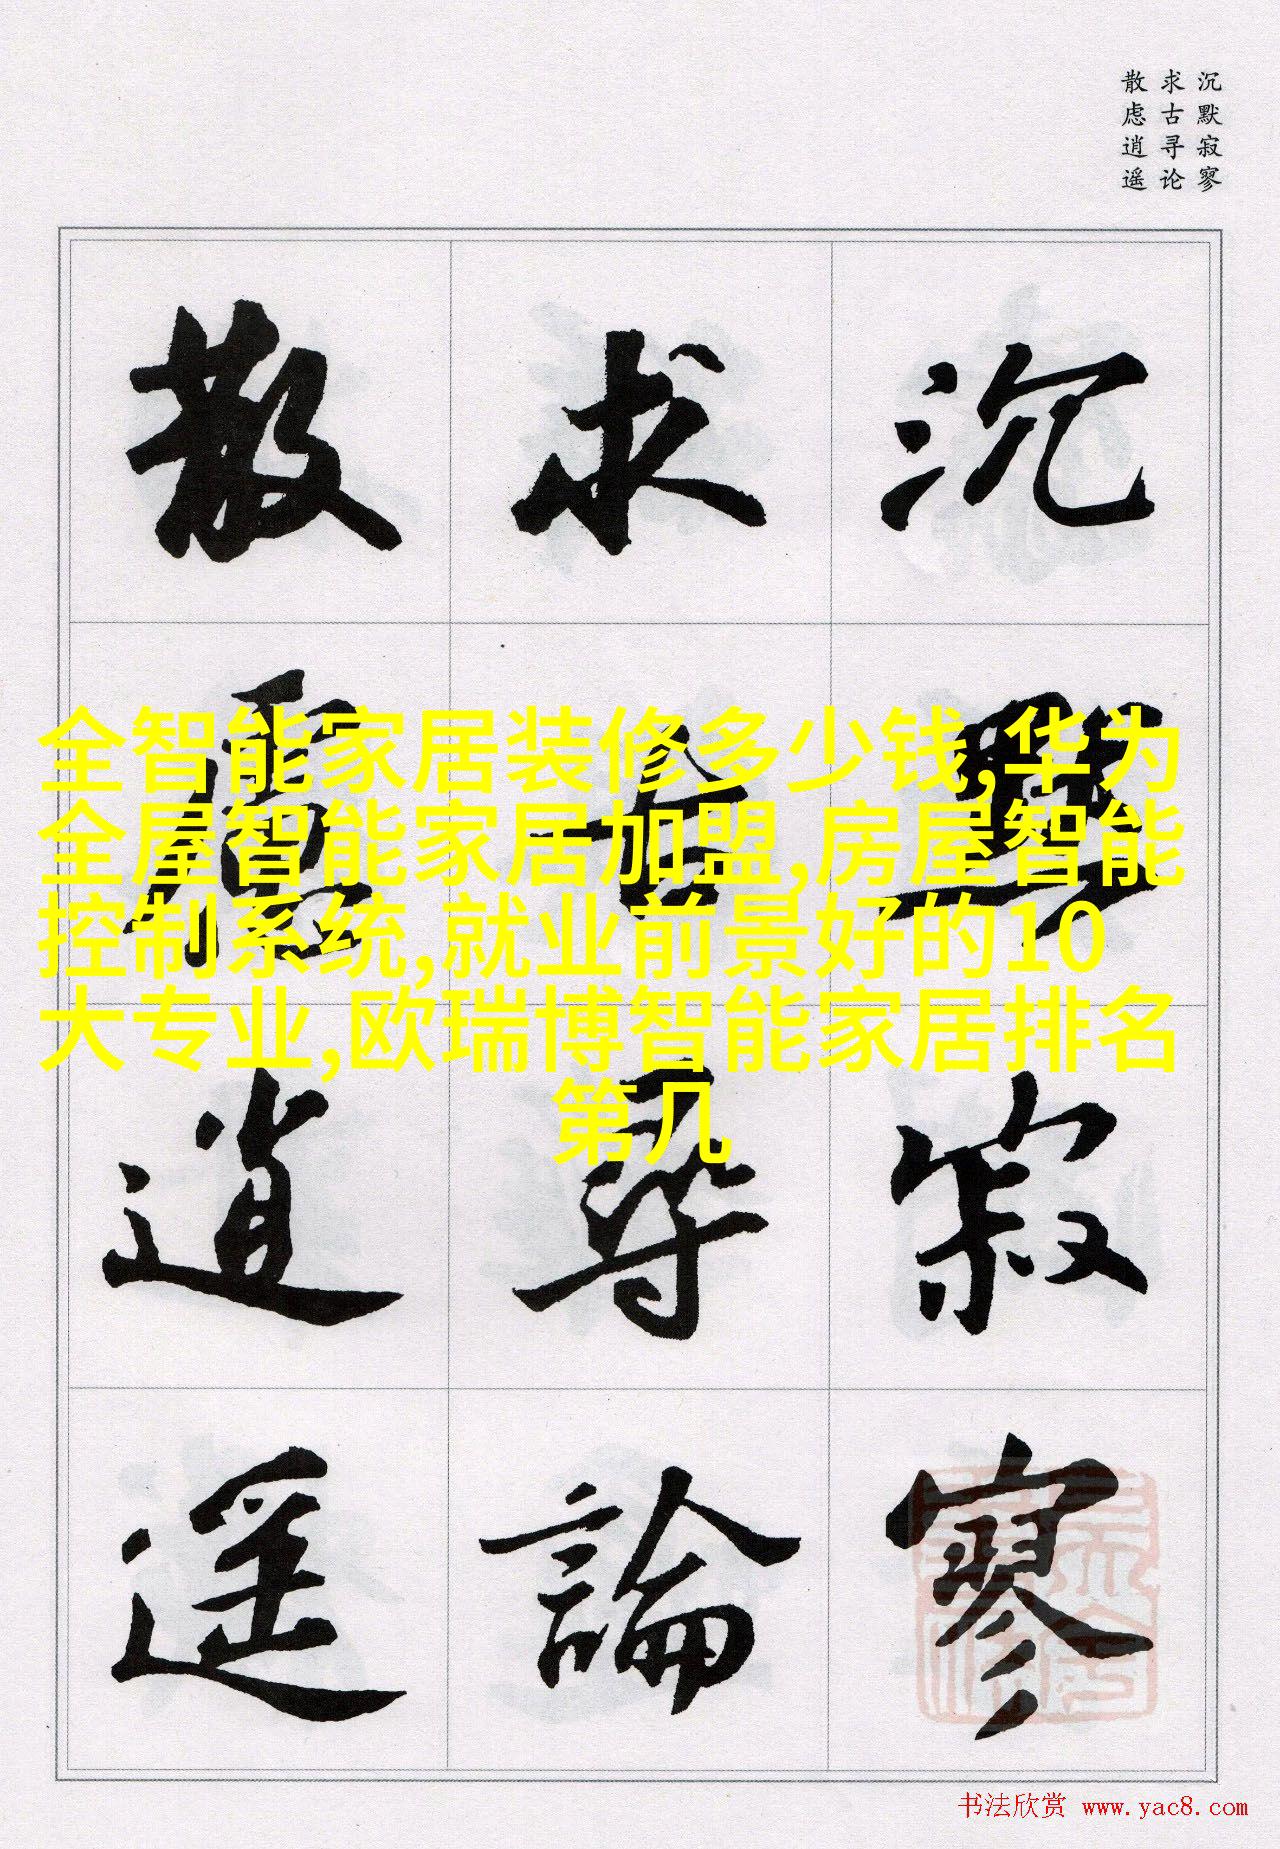 沉默寂寥
求古寻论
散虑逍遥
沉默寂寥
求古尋論
散慮逍遥
全智能家居装修多少钱,华为
全屋智能家居加盟,房屋智能
控制系统,就业前景好的10
大专业,欧瑞博智能家居排名
第几
书法欣赏 www.yac8.com